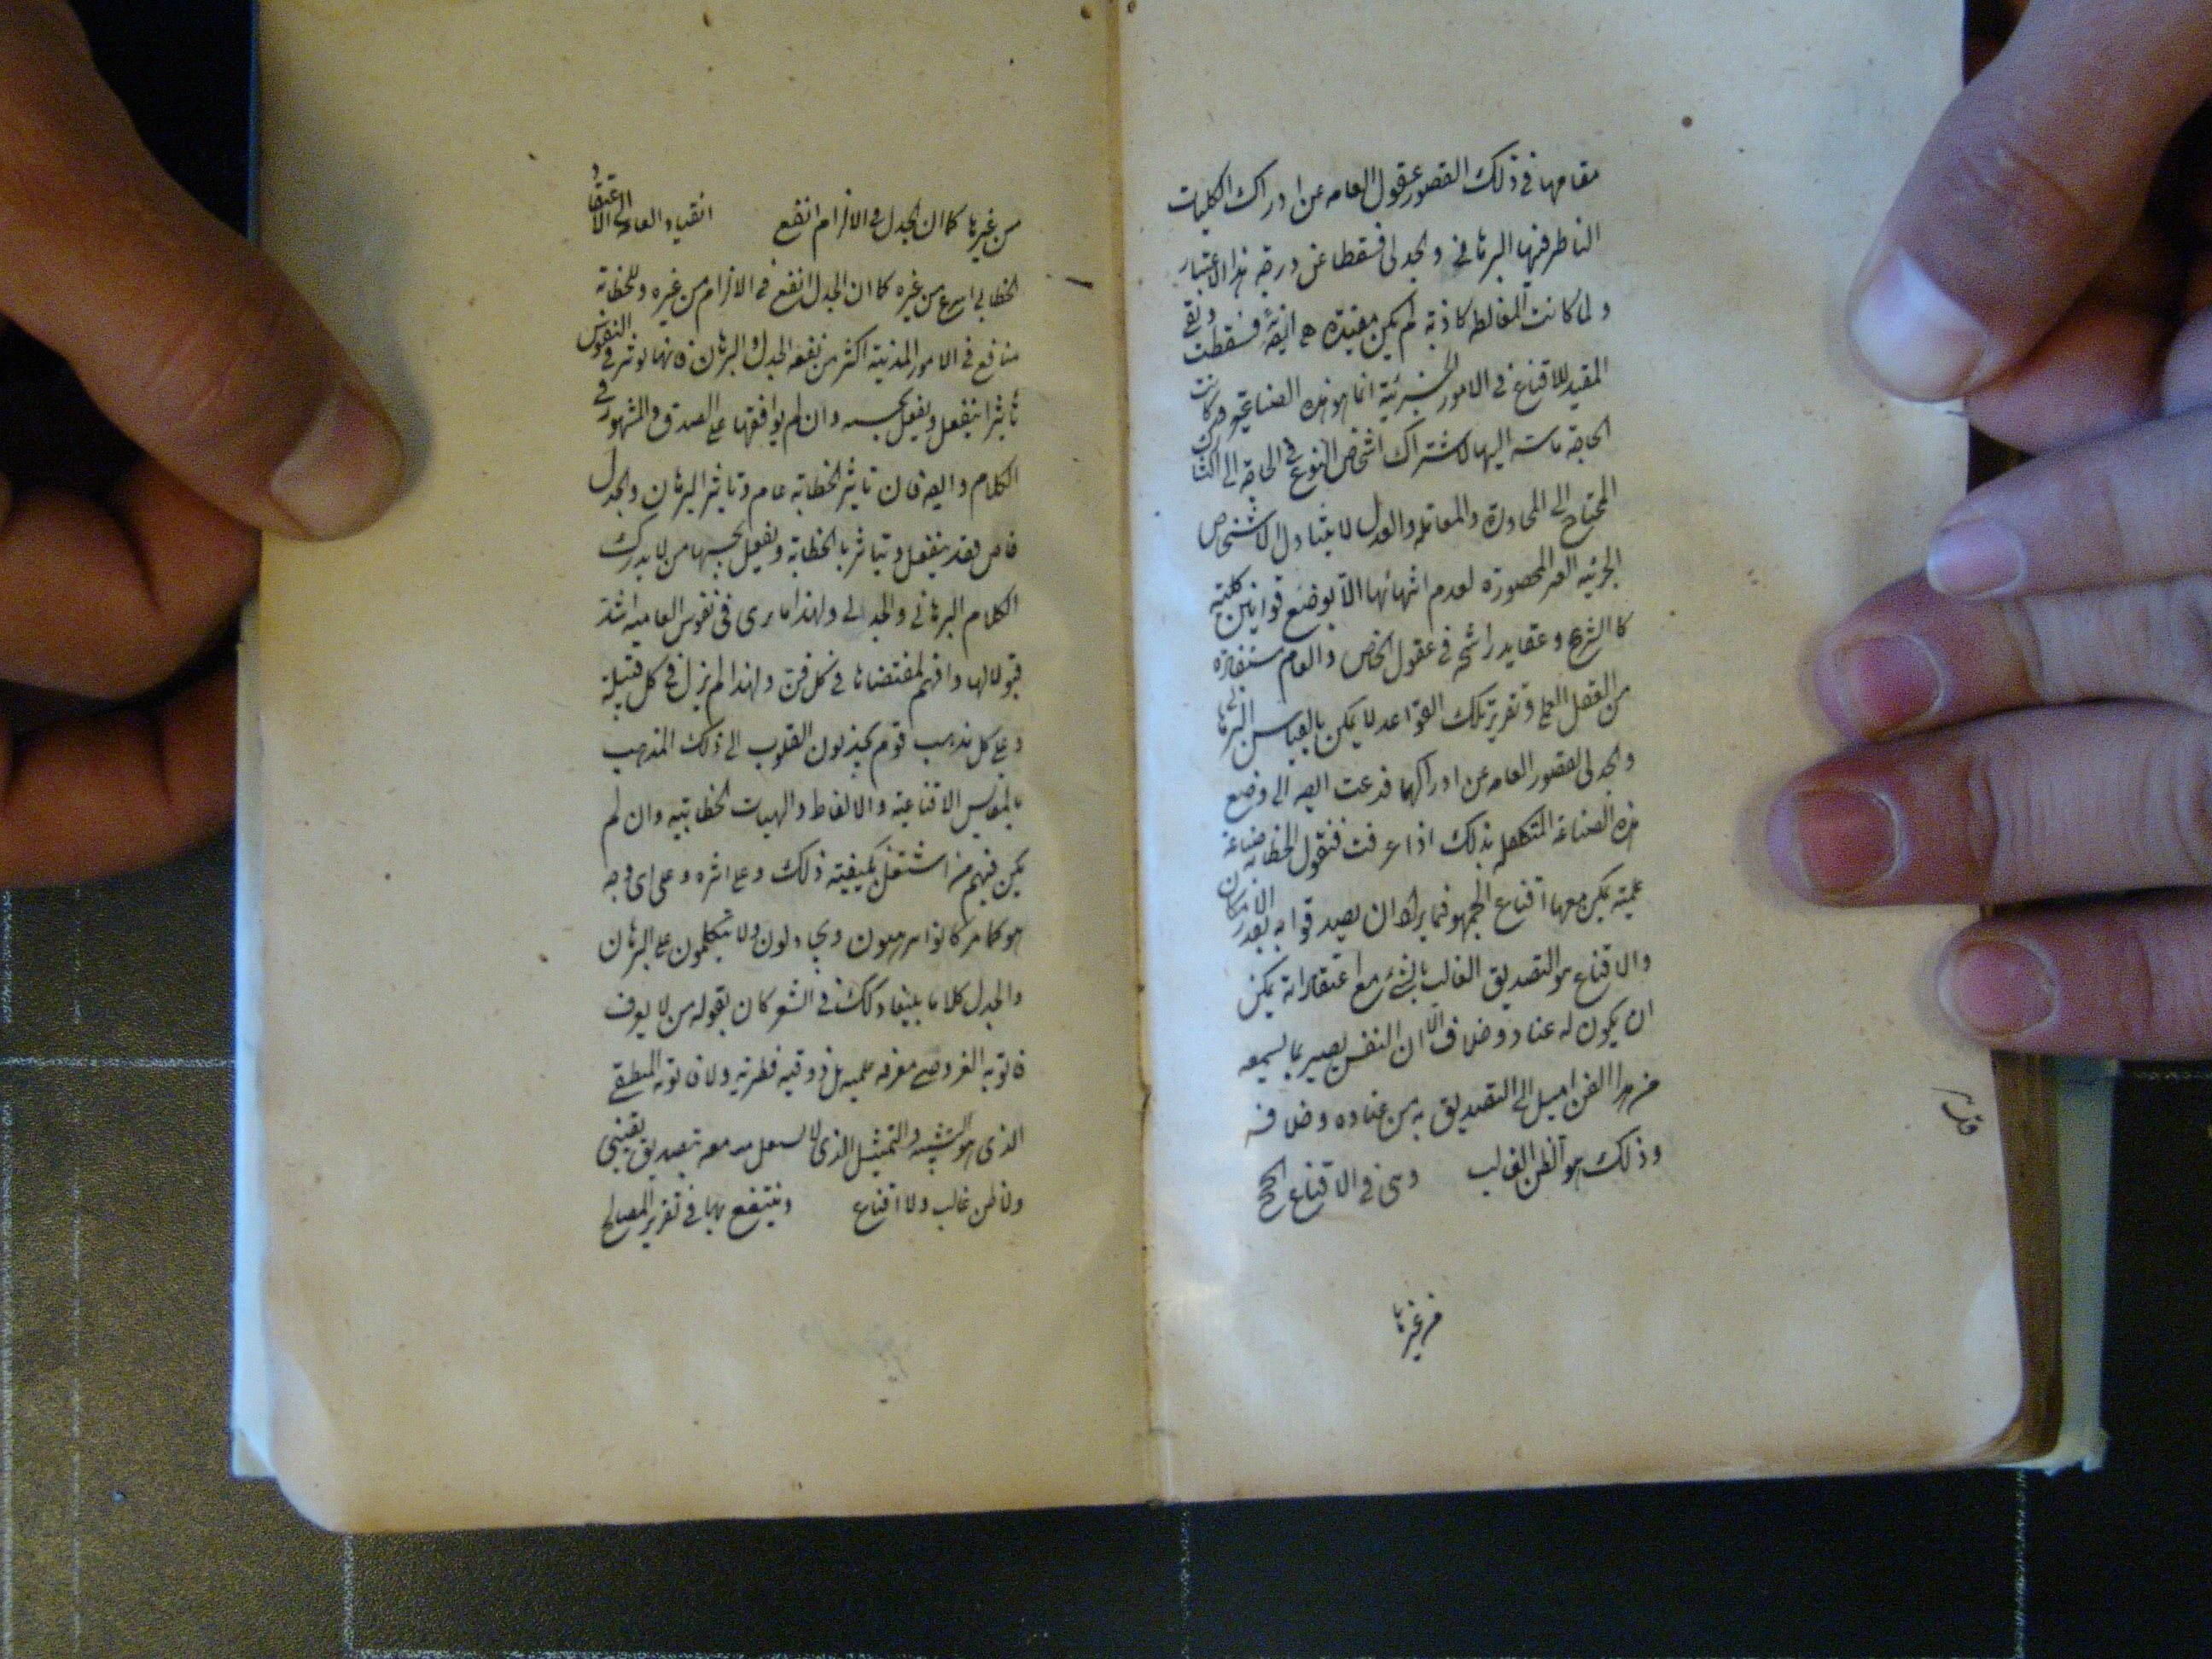 مقامها في ذلك لقصور عقول العامه عن ادراك الكليات
الناظر فيها البرهاني والجدلي فسقطا عن درجة هذا الاعتبار
ولما كانت المغالطه كاذبة لم يكن مفيدة فسقطت وبقي
المفيد للاقناع في الامور الجزئية انما هو هذه الصناعة وكانت
الحاجة ماسه اليها لاشتراك اشخاص النوع في الحاجة الى
المحتاج الى المحاورة والمعامله والعدل لا يتناول الاشخاص
الجزئيه الغير المحصورة لعدم انتهائها الا بوضع قوانين كلية
كالشرع وعقايد راسخه في عقول الخاص والعام مستفادة
من العقل العملي وتقرير تلك القواعد لا يمكن بالقياس البرهاني
والجدلي لقصور العامه عن ادراكهما فدعت الضرورة الى وضع
هذه الصناعة المتكفله بذلك اذا عرفت فنقول الخطابه صناعة
علمية يمكن معها اقناع الجمهور فيما يراد ان يصدقوا به بقدر الامكان
والاقناع هو التصديق الغالب بالشئ مع اعتقاد انه يمكن
ان يكون له عناد وخلاف الا ان النفس يصير بما يسمعه
من هذا الفن اميل الى التصديق به من عناده وخلافه
وذلك هو الظن الغالب وهي في الاقناع انجح
من غيرها
من غيرها كما ان الجدل في الالزام انفع انقياد العامه الى الاعتقاد
الخطابي اسرع من غيره كما ان الجدل انفع في الالزام من غيره وللخطابة
منافع في الامور المدنية اكثر من نفع الجدل والبرهان فانها توثر في النفوس
تأثيرا ينفعل ويفعل بحسبه وان لم يوافقها على الصدق والمشهور في
الكلام وايضا فان تاثير الخطابة عام وتاثير البرهان والجدل
خاص فقد ينفعل ويتاثر بالخطابة ويفعل بحسبها من لا يدرك
الكلام البرهاني والجدلي ولهذا ما يرى في نفوس العاميه اشد
قبولا لها وافهم لمقتضاها في كل فن ولهذا لم يزل في كل قبيلة
وعلى كل مذهب قوم يجذبون القلوب الى ذلك المذهب
بالمقاييس الاقناعية والالفاظ والهيات الخطابية وان لم
يكن فيهم من اشتغل بكيفية ذلك وعلى اثره وعلى اى وجه
هو كما مر كانوا يبرهنون ويجادلون ولا يتكلمون على البرهان
والجدل كلاما بليغا وكذلك في الشعر كان يقوله من لا يعرف
قانونه العروضي معرفه علميه بل ذوقيه فطريه ولا قانونه المنطقي
الذى هو التشبيه والتمثيل الذى لا معه تصديق يقيني
ولا ظن غالب ولا اقناع وينتفع بها في تقرير المصالح